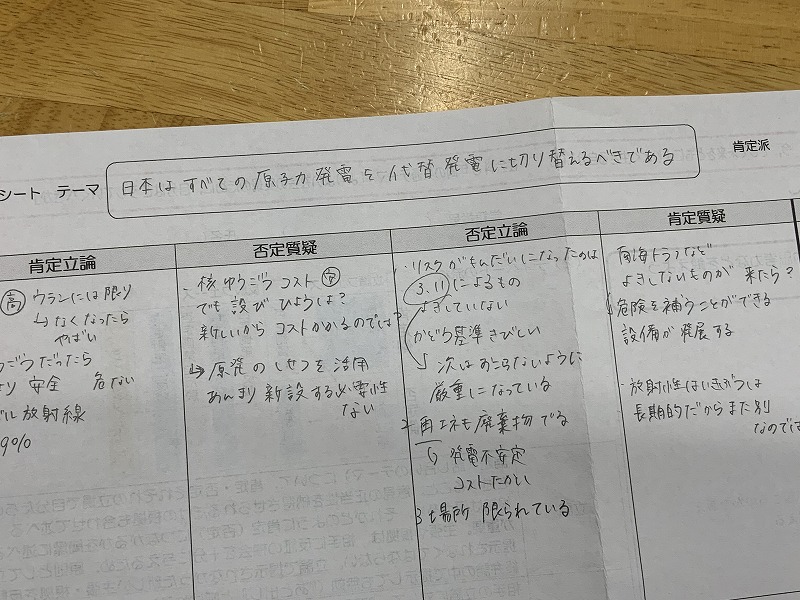 シート テーマ
日本はすべての原子力発電を代替発電に切り替えるべきである
肯定派
肯定立論
高 ウランには限り
↳なくなったら
やばい
ごうだったら
安全 危ない
放射線
9%
否定質疑
・核ゆうごう コスト 安
でも設び ひようは?
新しいから コストかかるのでは?
↳原発のしせつを活用
あんまり新設する必要性
ない
否定立論
・リスクがもんだいになったのは
3.11によるもの
よきしていない
かどう基準きびしい
↓次はおこらないように
厳重になっている
2 再エネも廃棄物でる
↳発電不安定
コストたかい
3 場所 限られている
肯定質疑
南海トラフなど
よきしないものが 来たら?
↓危険を補うことができる
設備が発展する
・放射性はいきぶつは
長期的だからまた別
なのでは